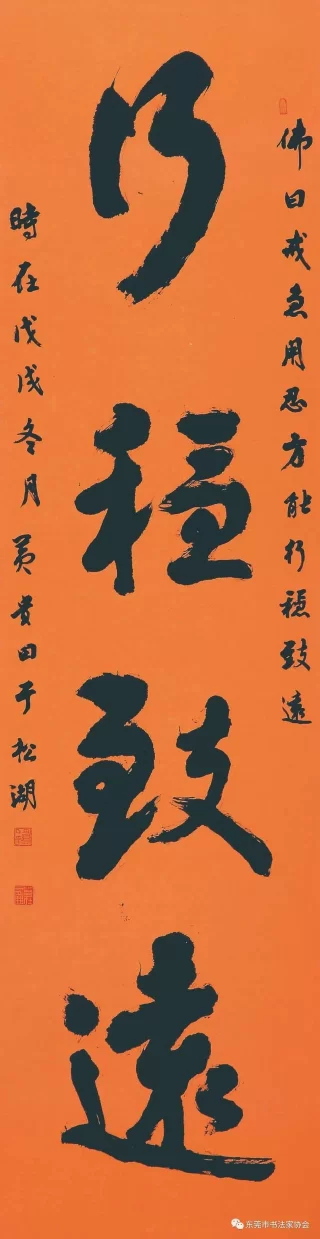 佛曰戒急用忍方能行穩致遠
行穩致遠
時在戊戌冬月黄贵田于松湖
东莞市书法家协会